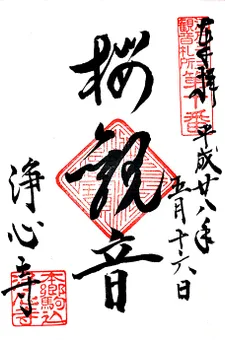 奉拝
平成廿八年
五月十六日
観音札所
第十番
桜観音
浄心寺
本郷駒込
浄心寺